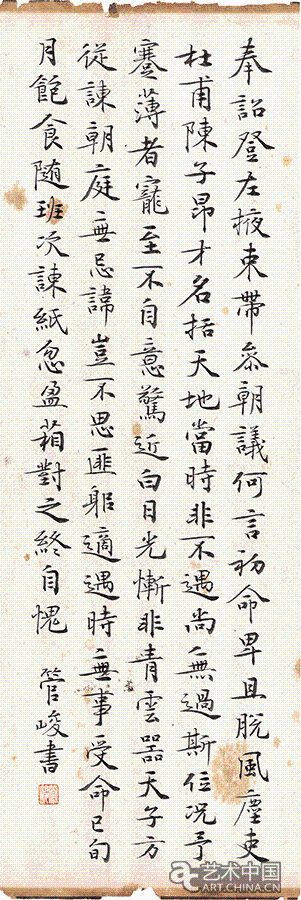 奉詔登左掖束帶叅朝議何言初命卑且脫風塵吏
杜甫陳子昂才名括天地當時非不遇尚無過斯位況予
蹇薄者寵至不自意驚近白日光慚非青雲器天子方
從諫朝庭無忌諱豈不思匪躬適遇時無事受命已旬
月飽食随班次諫紙忽盈箱對之終自愧 管峻書
艺术中国
ART.CHINA.CN